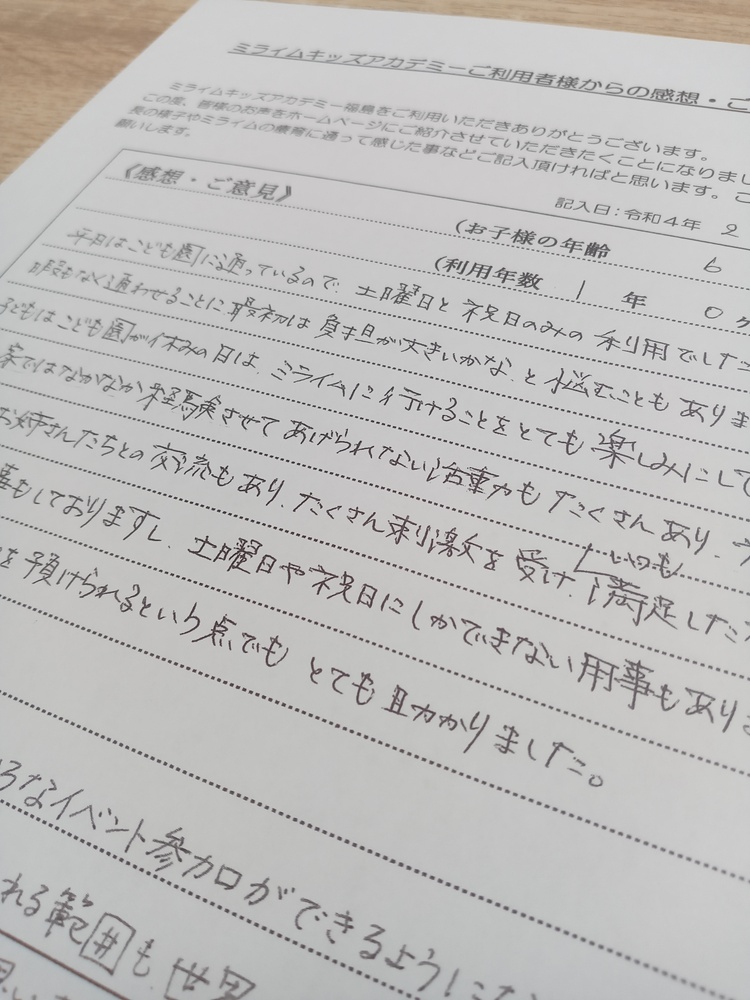 ミライムキッズアカデミーご利用者様からの感想・ご
ミライムキッズアカデミー福島をご利用いただきありがとうございます。
この度、皆様のお声をホームページにご紹介させていただきたくことになりまし
長の様子やミライムの療育に通って感じた事などご記入頂ければと思います。こ
願いします。
記入日:令和4年 2
《感想・ご意見》
(お子様の年齢 6
(利用年数 1 年 0 ヶ
平日はこども園に通っているので、土曜日と祝日のみの利用でした
暇もなく通わせることに最初は負担が大きいかな、と悩むこともありま
子どもはこども園が休みの日は、ミライムに行けることをとても楽しみにして
家ではなかなか経験させてあげられない活動もたくさんあり、
お姉さんたちとの交流もあり、たくさん刺激を受け、いつも満足した
事もしておりますし、土曜日や祝日にしかできない用事もありま
を預けられるという点でもとても助かりました。
ろなイベント参加ができるように
れる範囲も世界